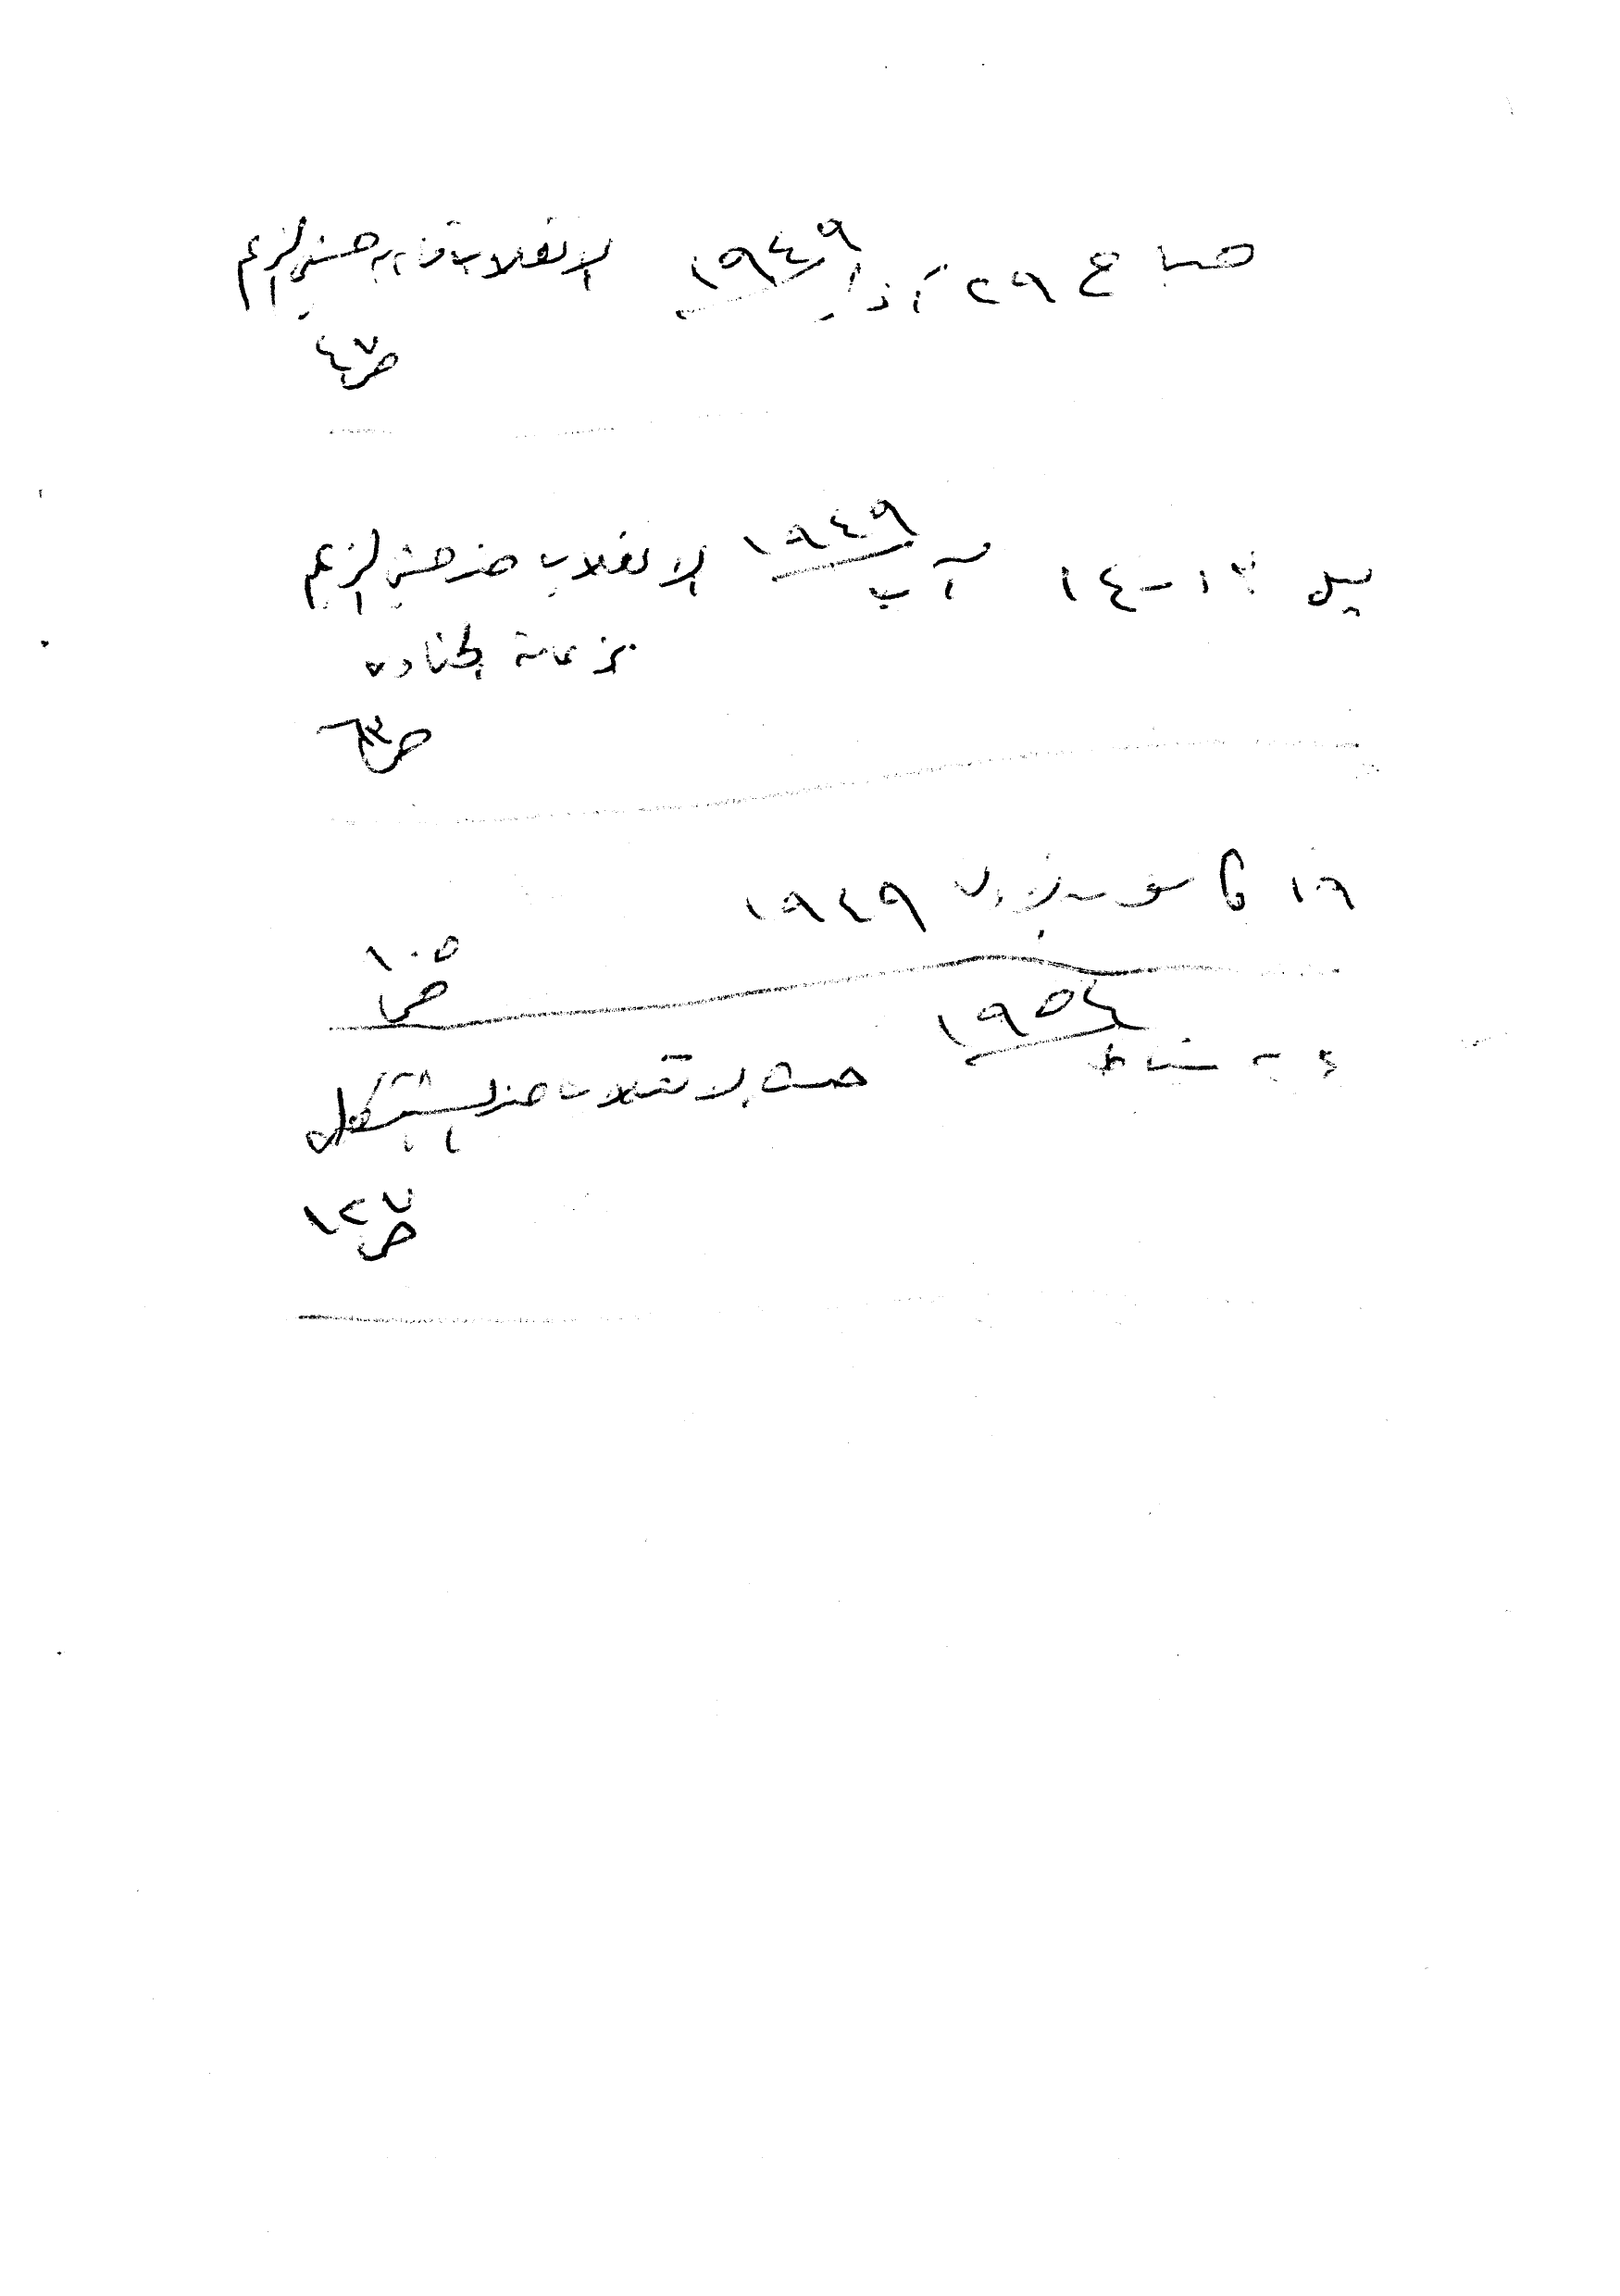 صباح ٢٩ آذار ١٩٤٩ الانقلاب قام به حسني الزعيم
ص ٤٧
ليل ١٣-١٤ آب ١٩٤٩ الانقلاب ضد حسني الزعيم
بزعامة الحناوي
ص ٦٣
١٩ كانون الأول ١٩٤٩
ص ١٠٥
شباط ١٩٥٤
الانقلاب ضد الشيشكلي
ص ١٢٧